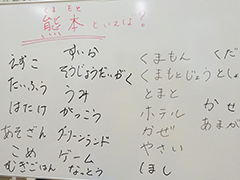 くまもと
熊本といえば?
えずこ
たいふう
はたけ
あそさん
こめ
むぎごはん
すいか
そうじょうだいがく
うみ
がっこう
グリーンランド
ゲーム
なっとう
くまもん
くまもとじょう
とまと
ホテル
かぜ
やさい
ほし
くだ
とし
かせ
あまが